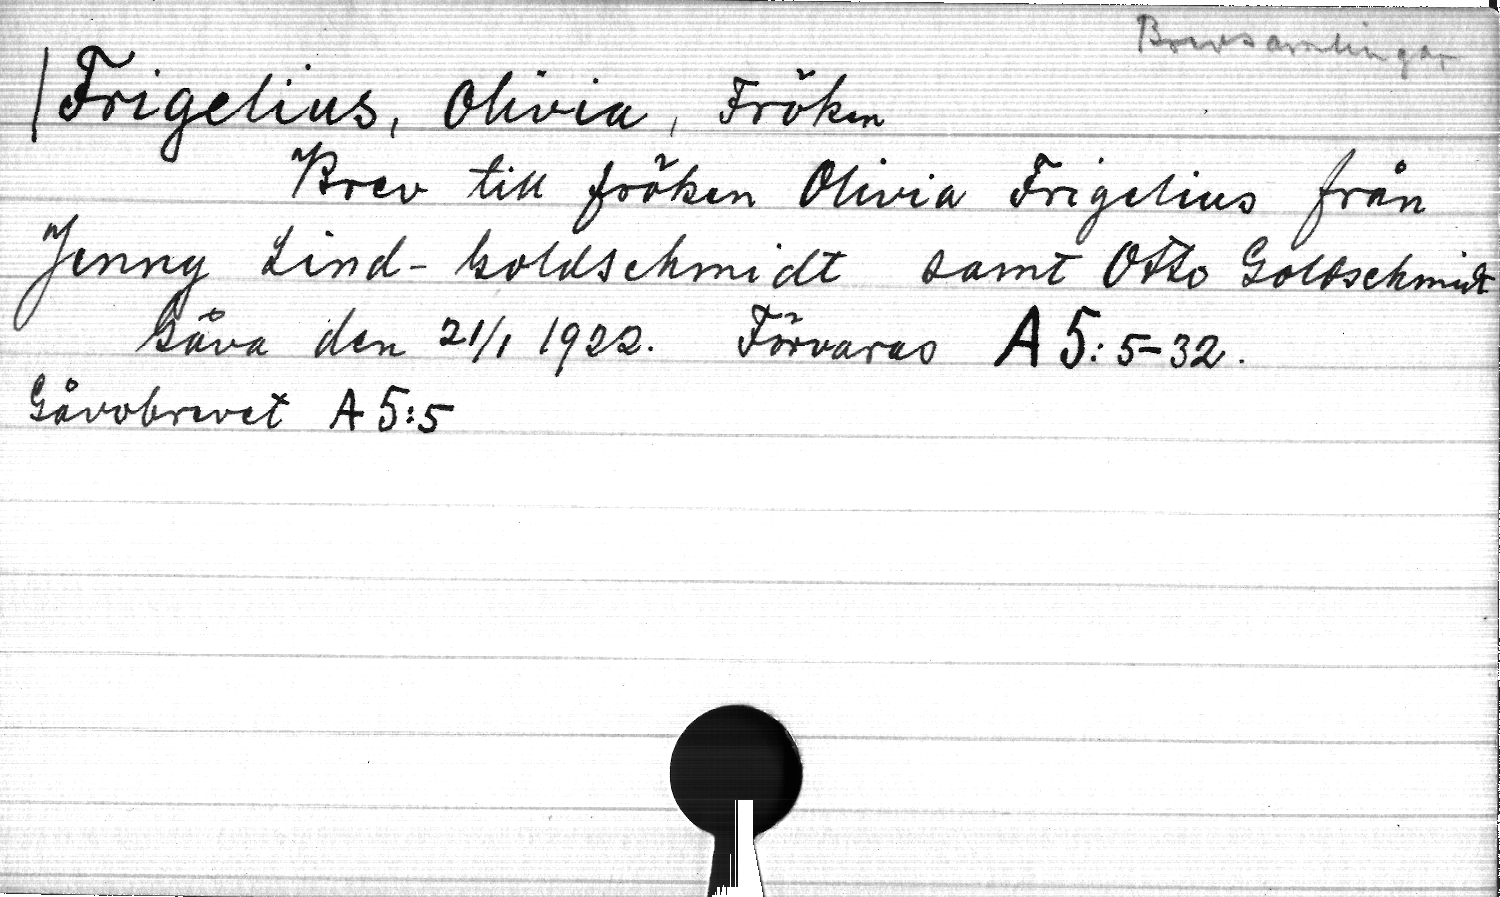 Brevsamlingar
Frigelius, Olivia, Fröken
Brev till fröken Olivia Frigelius från
Jenny Lind-Goldschmidt samt Otto Goldschmidt
Gåva den 21/1 1922. Förvaras A 5:5-32.
Gåvobrevet A 5:5